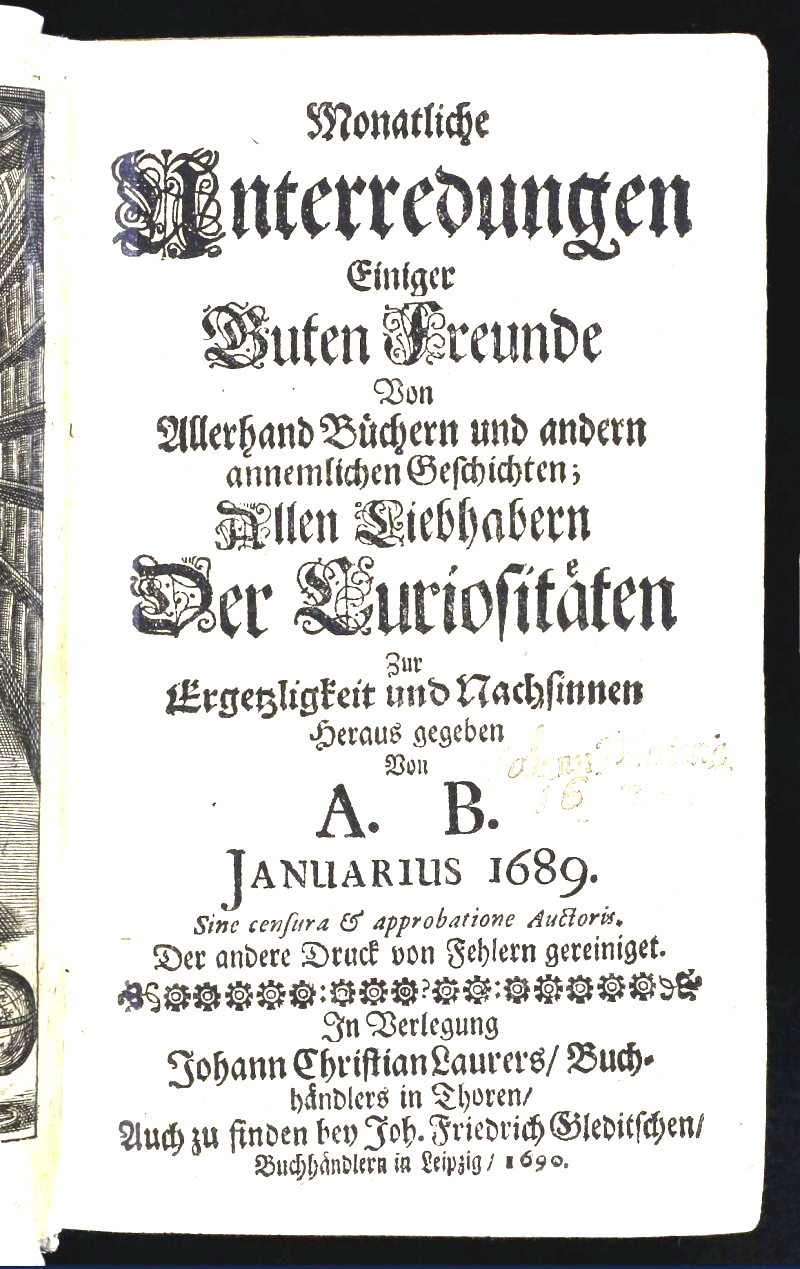 Monatliche
Unterredungen
Einiger
Guten Freunde
Von
Allerhand Büchern und andern
annemlichen Geschichten;
Allen Liebhabern
Der Curiositäten
Zur
Ergetzligkeit und Nachsinnen
Heraus gegeben
Von
A. B.
JANUARIUS 1689.
Sine censura & approbatione Auctoris.
Der andere Druck von Fehlern gereiniget.
In Verlegung
Johann Christian Laurers/ Buch-
händlers in Thoren/
Auch zu finden bey Joh. Friedrich Gleditschen/
Buchhändlern in Leipzig/ 1690.